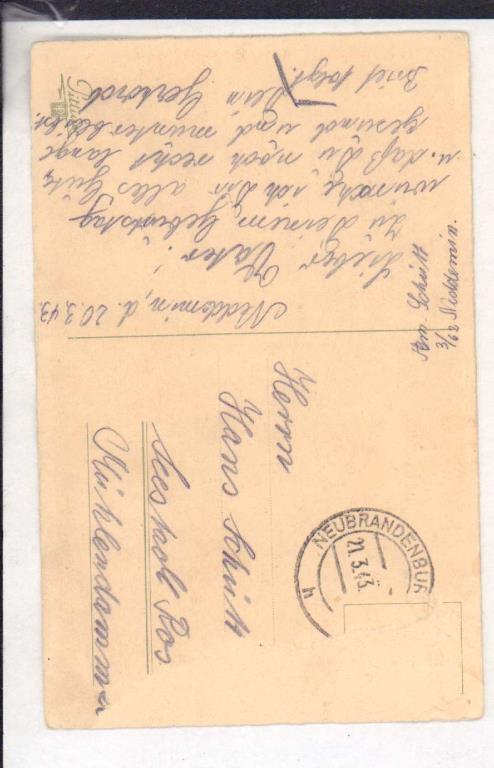 Neddemin, d. 20.3.43.
Lieber Vater!
Zu deinem Geburtstag
wünsche ich Dir alles Gute
u. daß du noch recht lange
gesund und munter bleibst.
Dein Gerhard
Brief folgt.
Schütt
3/62 Neddemin.
Herrn
Hans Schütt
Seestadt Ros
Mühlendamm
NEUBRANDENBUR
21.3.43.
h